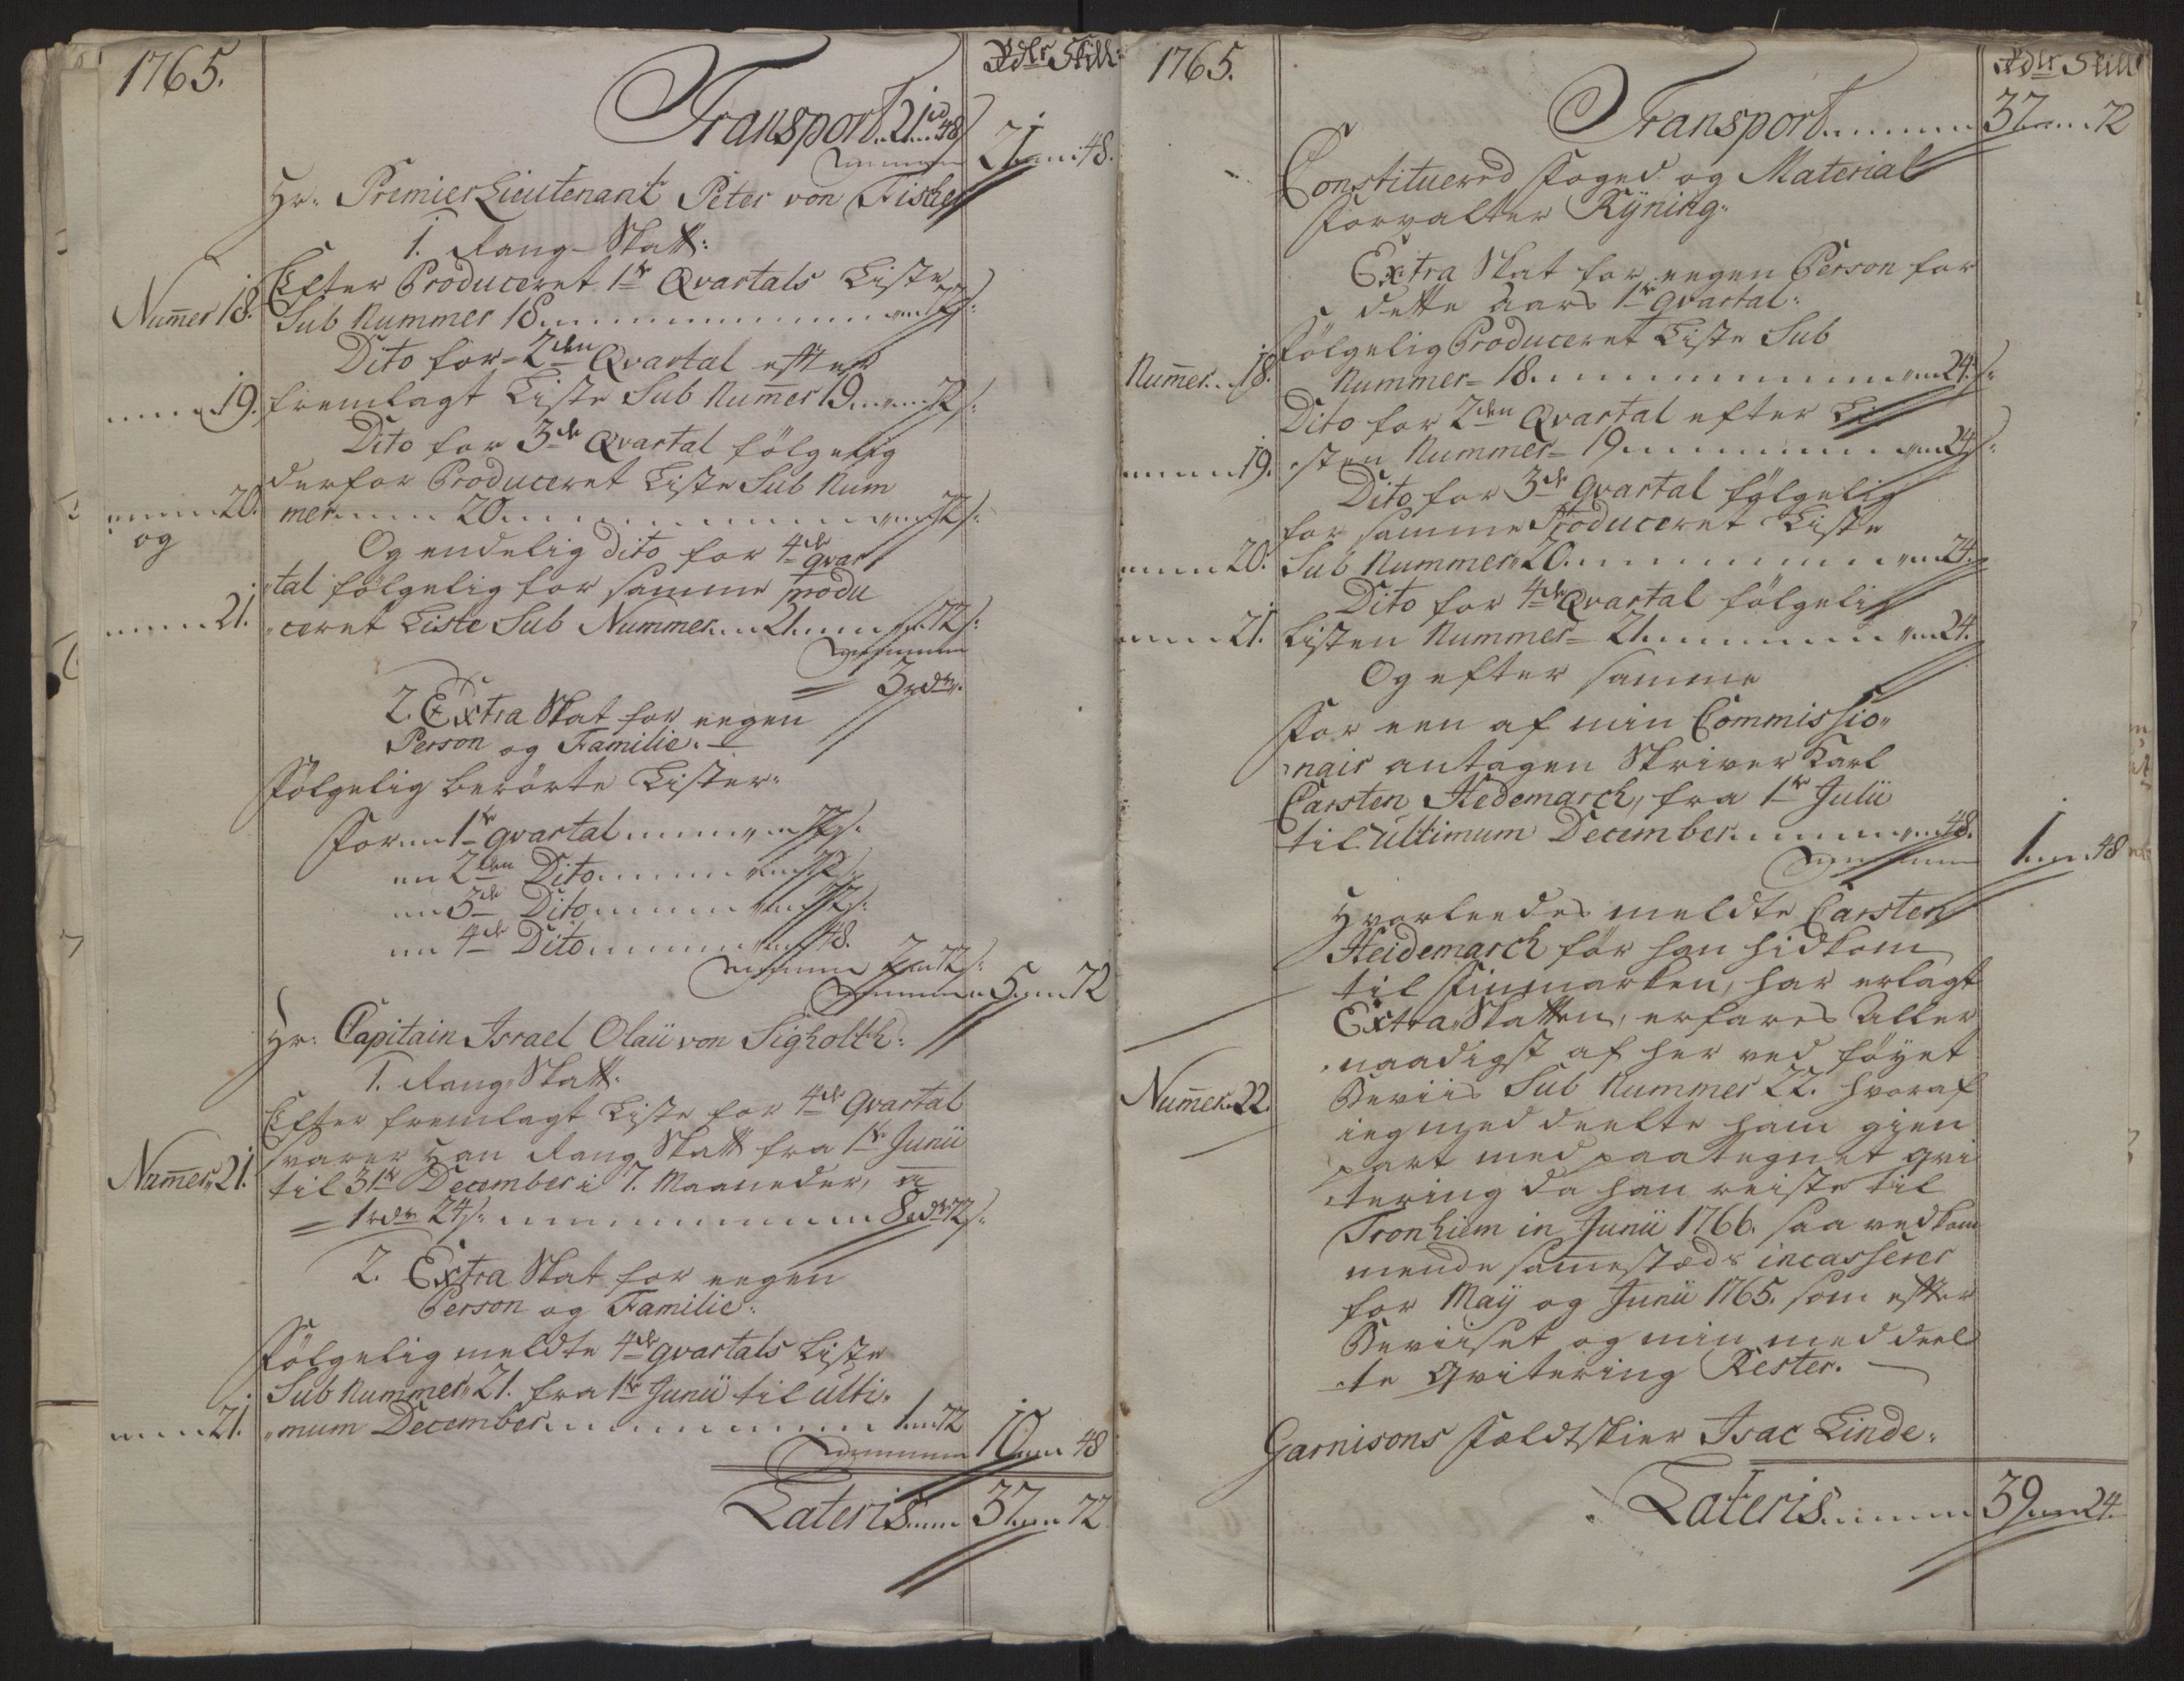 1765.
Rdlr Skill:
Transport 21 rd 48
21 48.
Hr: Premier Lieutenant Peter von Fischer
1. Rang-Skatt:
Efter Produceret 1ste Qvartals Liste
Nummer 18. Sub Nummer 18. 72 s:
Dito for 2den Qvartal efter
19. fremlagt Liste Sub Nummer 19 72 s:
Dito for 3de Qvartal fölgelig
derfor Produceret Liste Sub Num
20. mer 20 72 s:
og
Og endelig dito for 4de qvar
tal fölgelig for samme produ
21. ceret Liste Sub Nummer 21 72 s:
3 rdr.
2. Extra Skat for eegen
Person og Familie.
Fölgelig berörte Lister:
For 1ste qvartal 72 s:
2den Dito 72 s:
3de Dito 72 s:
4de Dito 48.
2 72 s:
5 72
Hr: Capitain Israel Olaii von Sigholtt:
1. Rang Skatt:
Efter fremlagt Liste for 4de Qvartal
svarer Han Rang Skatt fra 1ste Junii
Nummer 21. til 31te December i 7. Maaneder, a
1 rdr 24 s: 8 rdr 72 s:
2. Extra Skat for eegen
Person og Familie:
Fölgelig meldte 4de qvartals Liste
Sub Nummer 21. fra 1ste Junii til ulti
21. mum December 1 72
10 48
Lateris 37 72
1765.
Rdlr Skill
Transport 37 72
Constituered Foged og Material
Forvalter Ryning.
Extra Skat for eegen Person for
dette Aars 1ste qvartal:
Fölgelig Produceret Liste Sub
Nummer 18. Nummer 18. 24 s:
Dito for 2den Qvartal efter Li
19. sten Nummer 19 24 s:
Dito for 3de qvartal fölgelig
for samme Produceret Liste
20. Sub Nummer 20. 24.
Dito for 4de Qvartal fölgelig
21. Listen Nummer 21. 24.
Og efter samme
For een af min Commissio
nair antagen Skriver Karl
Carsten Hedemarch, fra 1ste Julii
til ultimum December 48.
1 48
Hvorleedes meldte Carsten
Heidemarch för han hidkom
til Finmarken, har erlagt
Extra Skatten, erfares Aller
naadigst af her ved föyet
Nummer 22. Beviis Sub Nummer 22. hvoraf
ieg med deelte ham gien
part med paategnet qvi
tering da han reiste til
Tronhiem in Junii 1766. saa vedkom
mende sammestæds incasserer
for Maij og Junii 1765. som efter
Beviiset og min med deel
te Qvitering Rester.
Garnisons Feldtskier Isac Linde:
Lateris 39 24.